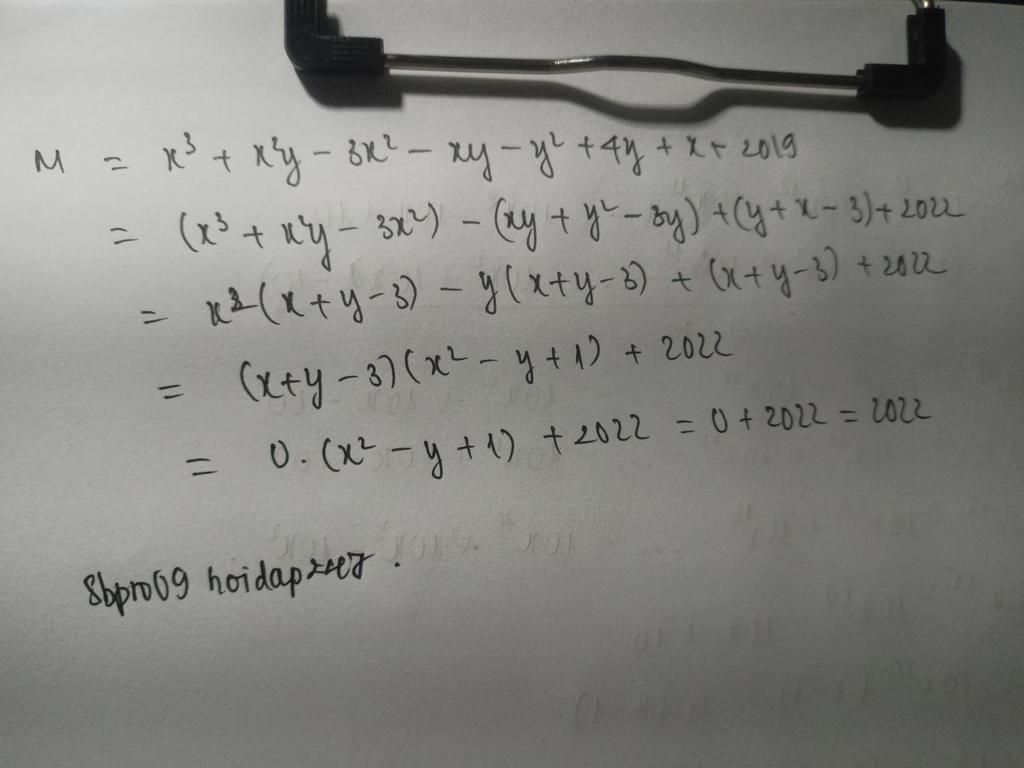 M = x³ + x²y - 3x² - xy - y² + 4y + x + 2019
= (x³ + x²y - 3x²) - (xy + y² - 3y) + (y + x - 3) + 2022
= x²(x + y - 3) - y(x + y - 3) + (x + y - 3) + 2022
= (x + y - 3)(x² - y + 1) + 2022
= 0 . (x² - y + 1) + 2022 = 0 + 2022 = 2022
8bpro09 hoidap247 .